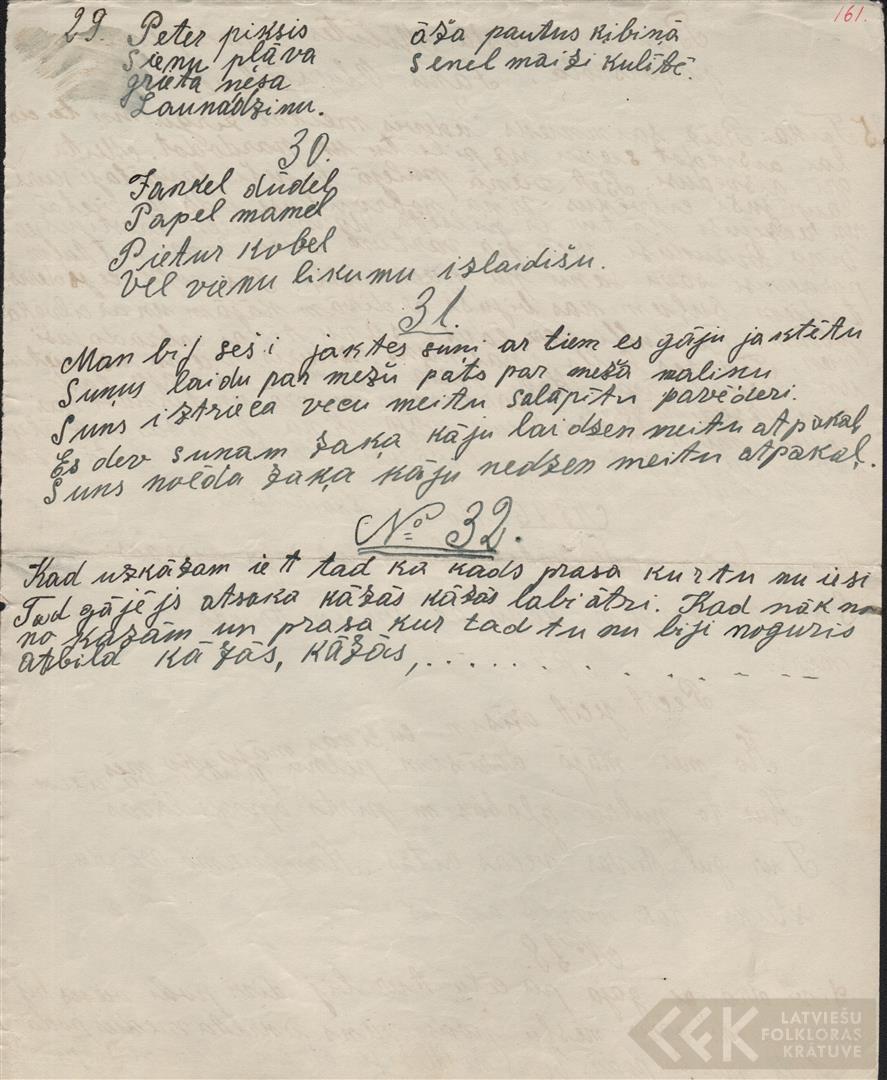 161.
29. Peter piksis
sienu pļāva
grieta nesa
Launadzinu.
āža pautus ķibiņā
senel maiži kulītē.
30.
Jankel dūdel
Papel mamel
Pietur kobel
Vel vienu likumu izlaidišu.
31.
Man bij seši jaktes suņi ar tiem es gāju jaktētu
Suņus laidu par mežu pats par meža malinu
Suns iztrieca vecu meitu salāpītu pavēderi.
Es dev sunam zaķa kāju laidzen meitu atpakaļ,
Suns noēda zaķa kāju nedzen meitu atpakaļ.
No 32.
Kad uzkāzam iet tad ka kads prasa kurtu nu iesi
Tad gājējs atsaka kāzās kāzās labi ātri. Kad nāk no
no kazām un prasa kur tad tu nu biji noguris
atbild kāzās, kāzās, . . . . . . .
LATVIEŠU
FOLKLORAS
KRĀTUVE